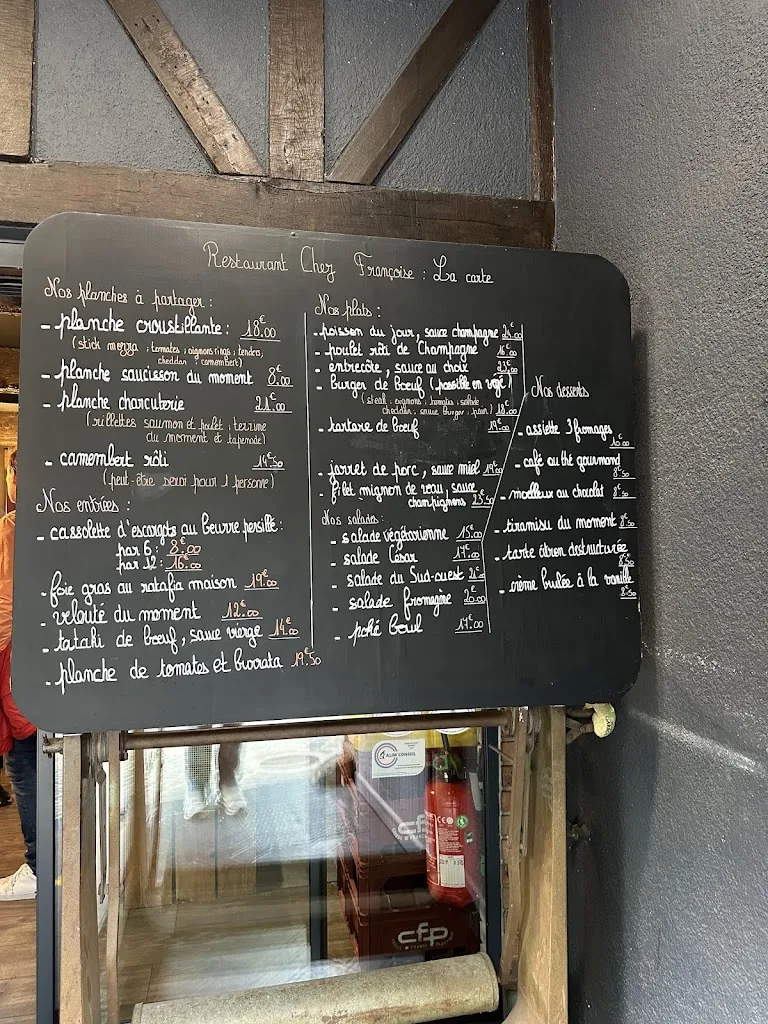 Restaurant Chez Françoise : La carte
Nos planches à partager :
- planche croustillante : 18€00
(stick mozza, tomates, oignons rings, tenders,
cheddar, camembert)
- planche saucisson du moment 8€00
- planche charcuterie 21€00
(rillettes saumon et poulet, terrine
du moment et tapenade)
- camembert rôti 14€50
(peut-être servi pour 1 personne)
Nos entrées :
- cassolette d'escargots au beurre persillé :
par 6 : 8€00
par 12 : 16€00
- foie gras au ratafia maison 19€00
- velouté du moment 12€00
- tataki de bœuf, sauce vierge 14€00
- planche de tomates et burrata 19€50
Nos plats :
- poisson du jour, sauce champagne 24€00
- poulet rôti de Champagne 16€00
- entrecôte, sauce au choix 23€00
- burger de bœuf (possible en végé)
(steak, oignons, tomates, salade
cheddar, sauce burger, pain) 18€00
- tartare de bœuf 19€00
- jarret de porc, sauce miel 19€00
- filet mignon de veau, sauce
champignons 23€50
Nos salades :
- salade végétarienne 15€00
- salade César 17€00
- salade du Sud-ouest 21€00
- salade fromagère 20€00
- poké bowl 17€00
Nos desserts
- assiette 3 fromages
10€00
- café ou thé gourmand
8€50
- moelleux au chocolat 8€50
- tiramisu du moment 8€50
- tarte citron destructurée
8€50
- crème brulée à la vanille
8€50
ALIM'CONSEIL
cfp
cfp